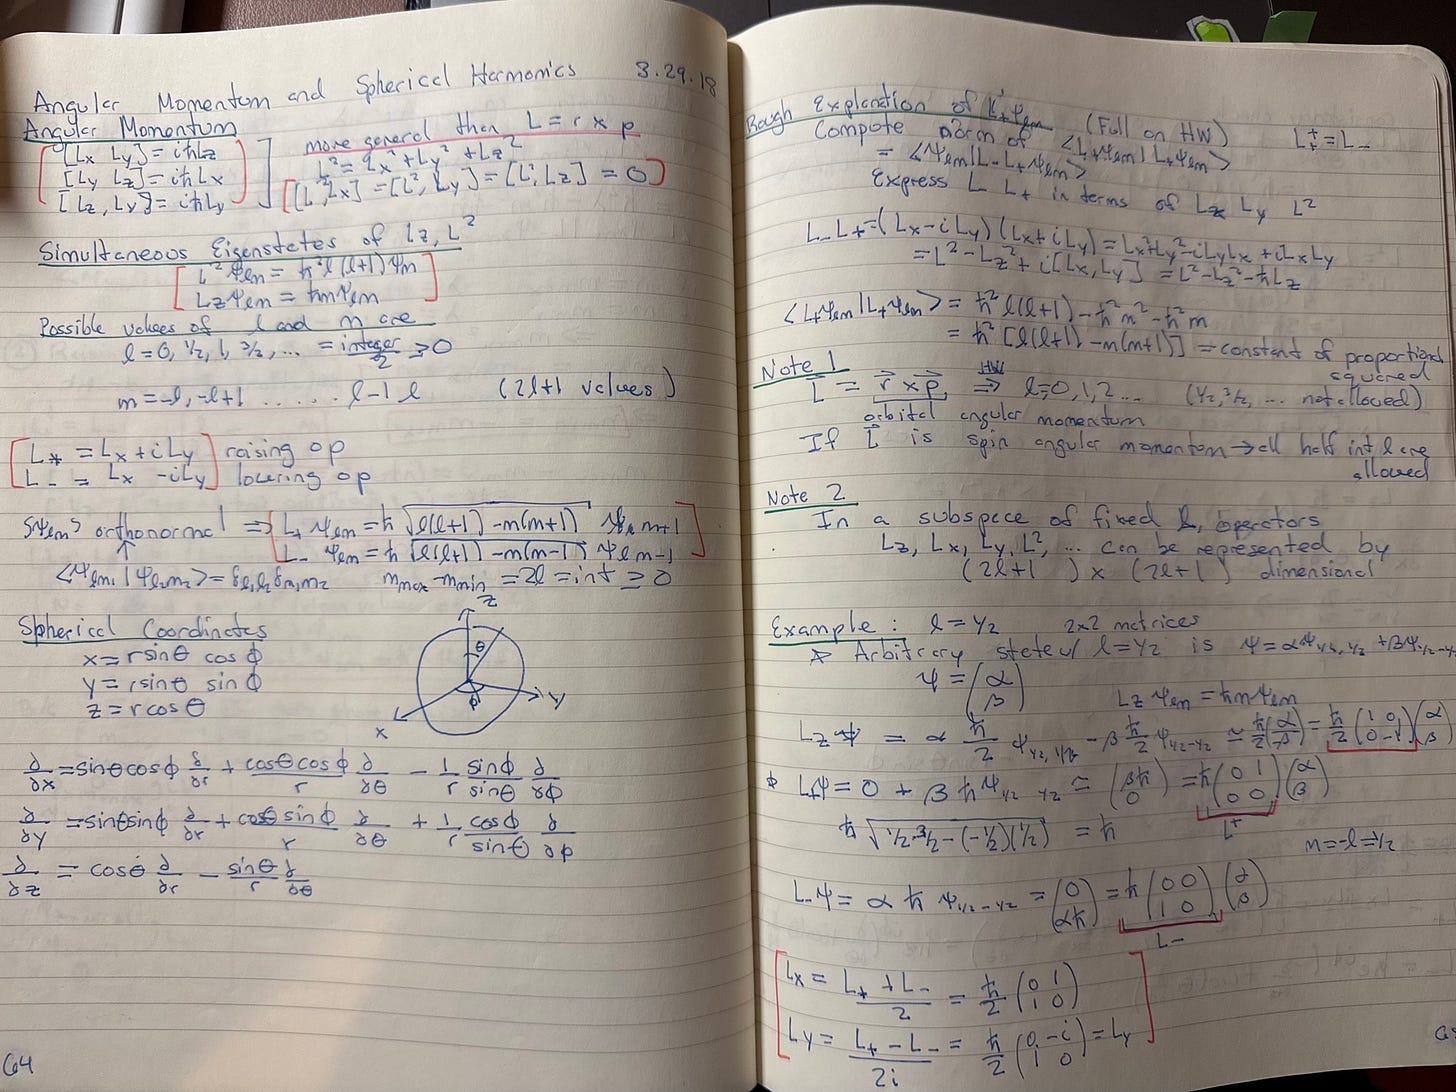 Angular Momentum and Spherical Harmonics 3.29.18
Angular Momentum
[Lx Ly] = iħLz
[Ly Lz] = iħLx
[Lz, Ly] = iħLy
more general than L = r x p
L² = Lx² + Ly² + Lz²
[L², Lx] = [L², Ly] = [L², Lz] = 0
Simultaneous Eigenstates of Lz, L²
L² Ψlm = ħ² l(l+1) Ψm
Lz Ψlm = ħm Ψlm
Possible values of l and m are
l = 0, 1/2, 1, 3/2, ... = integer/2 ≥ 0
m = -l, -l+1 ...... l-1 l (2l+1 values)
L+ = Lx + iLy raising op
L- = Lx - iLy lowering op
{Ψlm} orthonormal ⇒ L+ Ψlm = ħ √(l(l+1) - m(m+1)) Ψl m+1
L- Ψlm = ħ √(l(l+1) - m(m-1)) Ψl m-1
<Ψl1m1 | Ψl2m2> = δl1l2 δm1m2 mmax - mmin = 2l = int ≥ 0
Spherical Coordinates
x = r sinθ cos ϕ
y = r sinθ sin ϕ
z = r cos θ
z
θ
y
ϕ
x
∂/∂x = sinθ cosϕ ∂/∂r + cosθ cosϕ/r ∂/∂θ - 1/r sinϕ/sinθ ∂/∂ϕ
∂/∂y = sinθ sinϕ ∂/∂r + cosθ sinϕ/r ∂/∂θ + 1/r cosϕ/sinθ ∂/∂ϕ
∂/∂z = cosθ ∂/∂r - sinθ/r ∂/∂θ
64
Rough Explanation of L+Ψlm (Full on HW) L+† = L-
Compute norm of <L+Ψlm | L+Ψlm>
= <Ψlm | L- L+ Ψlm>
Express L- L+ in terms of Lz Ly L²
L- L+ = (Lx - iLy)(Lx + iLy) = Lx² + Ly² - iLyLx + iLxLy
= L² - Lz² + i[Lx, Ly] = L² - Lz² - ħLz
<L+Ψlm | L+Ψlm> = ħ² l(l+1) - ħ² m² - ħ² m
= ħ² [l(l+1) - m(m+1)] = constant of proportional
squared
Note 1
L = r x p HW ⇒ l = 0, 1, 2 ... (1/2, 3/2, ... not allowed)
orbital angular momentum
If L is spin angular momentum → all half int l are
allowed
Note 2
In a subspace of fixed l, operators
Lz, Lx, Ly, L², ... can be represented by
(2l+1) x (2l+1) dimensional
Example: l = 1/2 2x2 matrices
Arbitrary state w/ l = 1/2 is Ψ = αΨ1/2,1/2 + βΨ1/2-1/2
Ψ = (α β) Lz Ψlm = ħm Ψlm
Lz Ψ = α ħ/2 Ψ1/2,1/2 - β ħ/2 Ψ1/2-1/2 ≃ ħ/2 (α β) = ħ/2 (1 0 0 -1)(α β)
L+Ψ = 0 + β ħ Ψ1/2 1/2 ≃ (βħ 0) = ħ (0 1 0 0)(α β)
L+
ħ √(1/2·3/2 - (-1/2)(1/2)) = ħ
m = -l = -1/2
L-Ψ = α ħ Ψ1/2-1/2 = (0 αħ) = ħ (0 0 1 0)(α β)
L-
Lx = (L+ + L-)/2 = ħ/2 (0 1 1 0)
Ly = (L+ - L-)/2i = ħ/2 (0 -i 1 0) = Ly